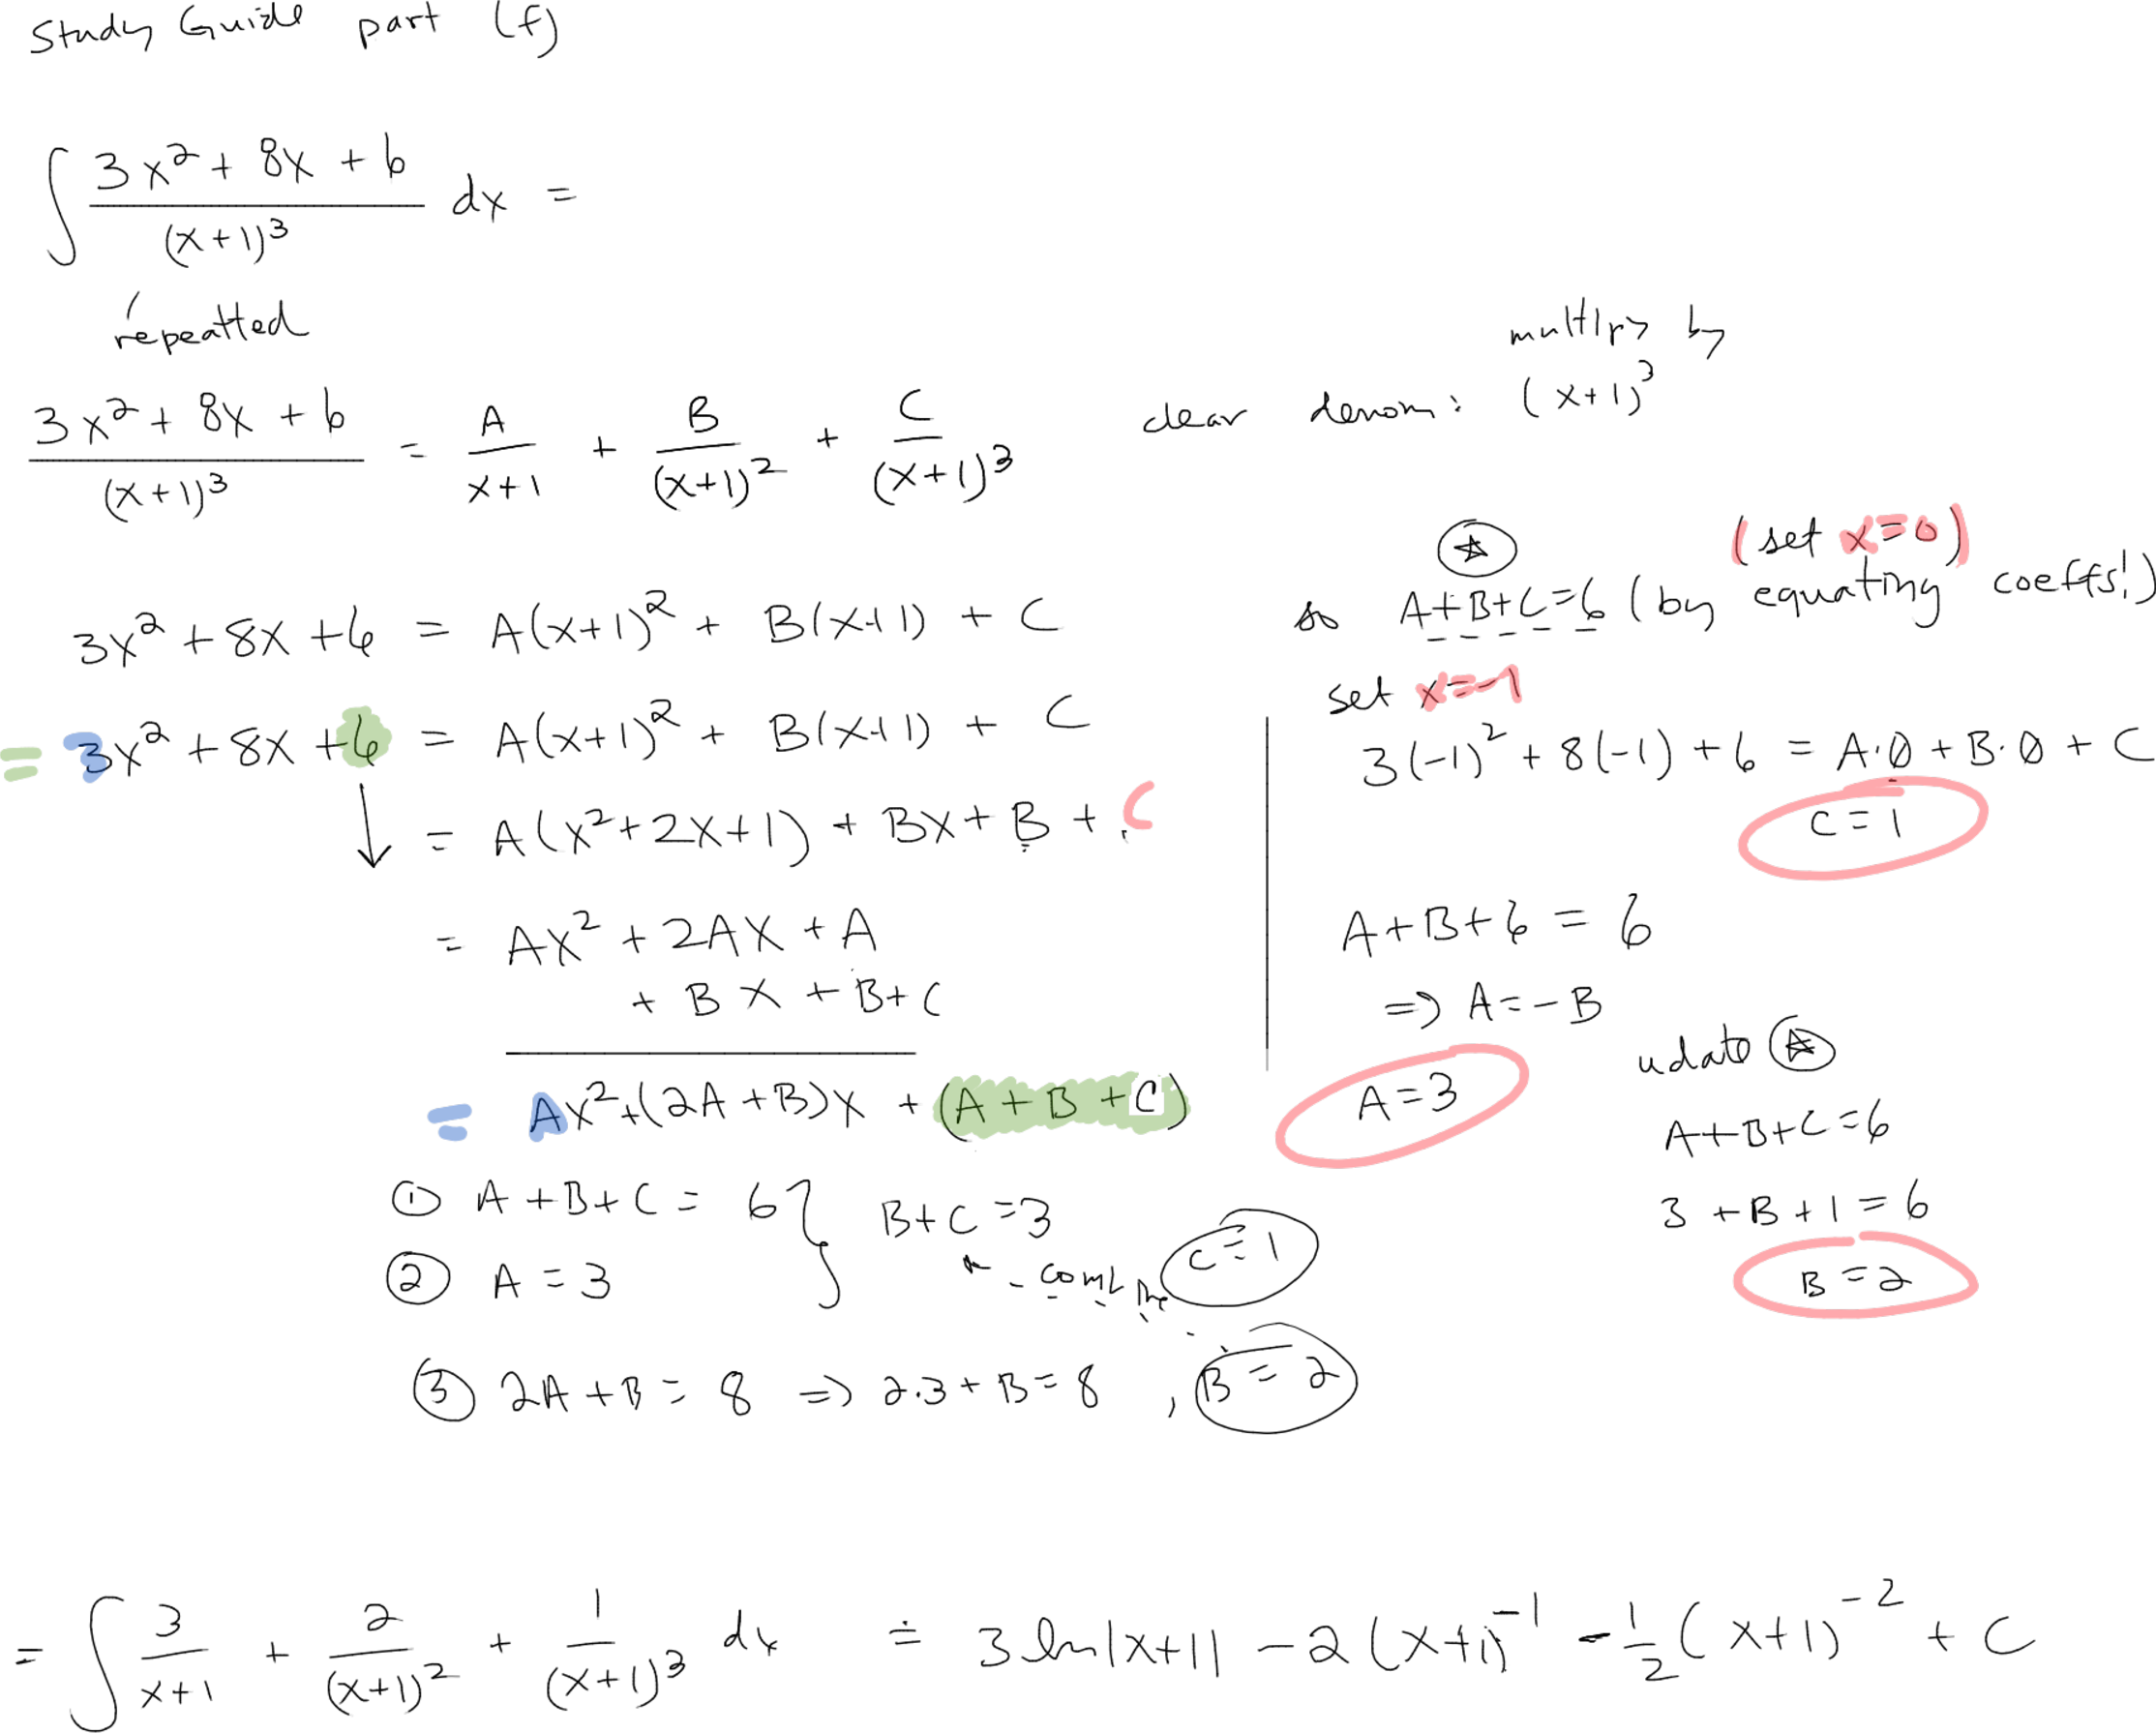 Study Guide part (f)
∫ (3x² + 8x + 6)/(x+1)³ dx =
repeatted
multiply by
(3x² + 8x + 6)/(x+1)³ = A/(x+1) + B/(x+1)² + C/(x+1)³ clear denom: (x+1)³
3x² + 8x + 6 = A(x+1)² + B(x+1) + C
= 3x² + 8x + 6 = A(x+1)² + B(x+1) + C
= A(x²+2x+1) + Bx + B + C
= Ax² + 2Ax + A
+ Bx + B + C
= Ax² + (2A+B)x + (A+B+C)
① A+B+C = 6 } B+C = 3
② A = 3 combine C = 1
③ 2A+B = 8 ⇒ 2·3+B = 8, B = 2
☆ (set x=0)
so A+B+C=6 (by equating coeffs!)
set x=-1
3(-1)² + 8(-1) + 6 = A·0 + B·0 + C
C = 1
A+B+6 = 6
⇒ A = -B
A = 3
udate ☆
A+B+C=6
3+B+1=6
B = 2
= ∫ 3/(x+1) + 2/(x+1)² + 1/(x+1)³ dx = 3 ln|x+1| - 2(x+1)⁻¹ - ½(x+1)⁻² + C